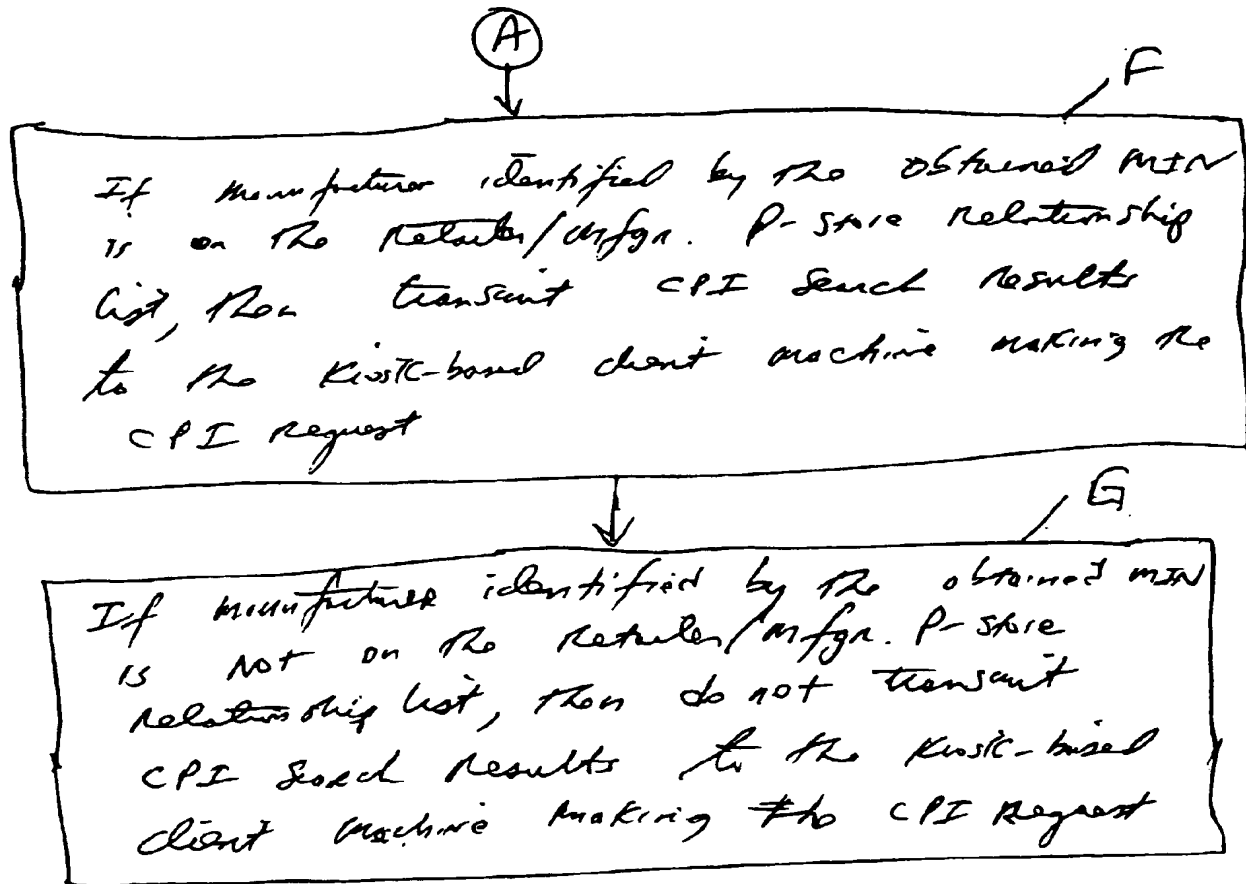 A
F
If manufacturer identified by the obtained MIN
is on the Retailer/Mfgr. P-Store Relationship
list, then transmit CPI Search Results
to the Kiosk-based client machine making the
CPI Request
G
If manufacturer identified by the obtained MIN
is NOT on the Retailer/Mfgr. P-Store
Relationship list, then do not transmit
CPI Search Results to the Kiosk-based
client machine making the CPI Request